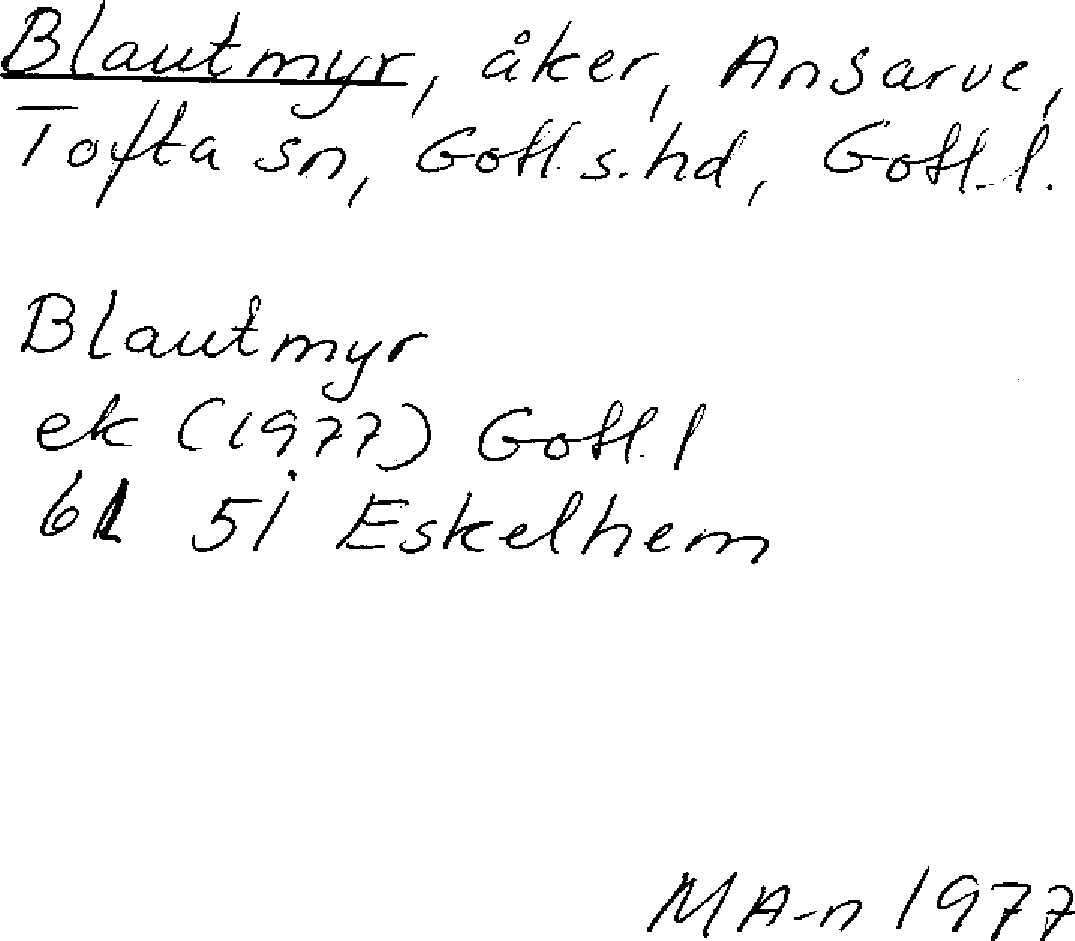 Blautmyr, åker, Ansarve,
Tofta sn, Gotl. s. hd, Gotl. l.
Blautmyr
ek (1977) Gotl. l
61 5i Eskelhem
MA-n 1977